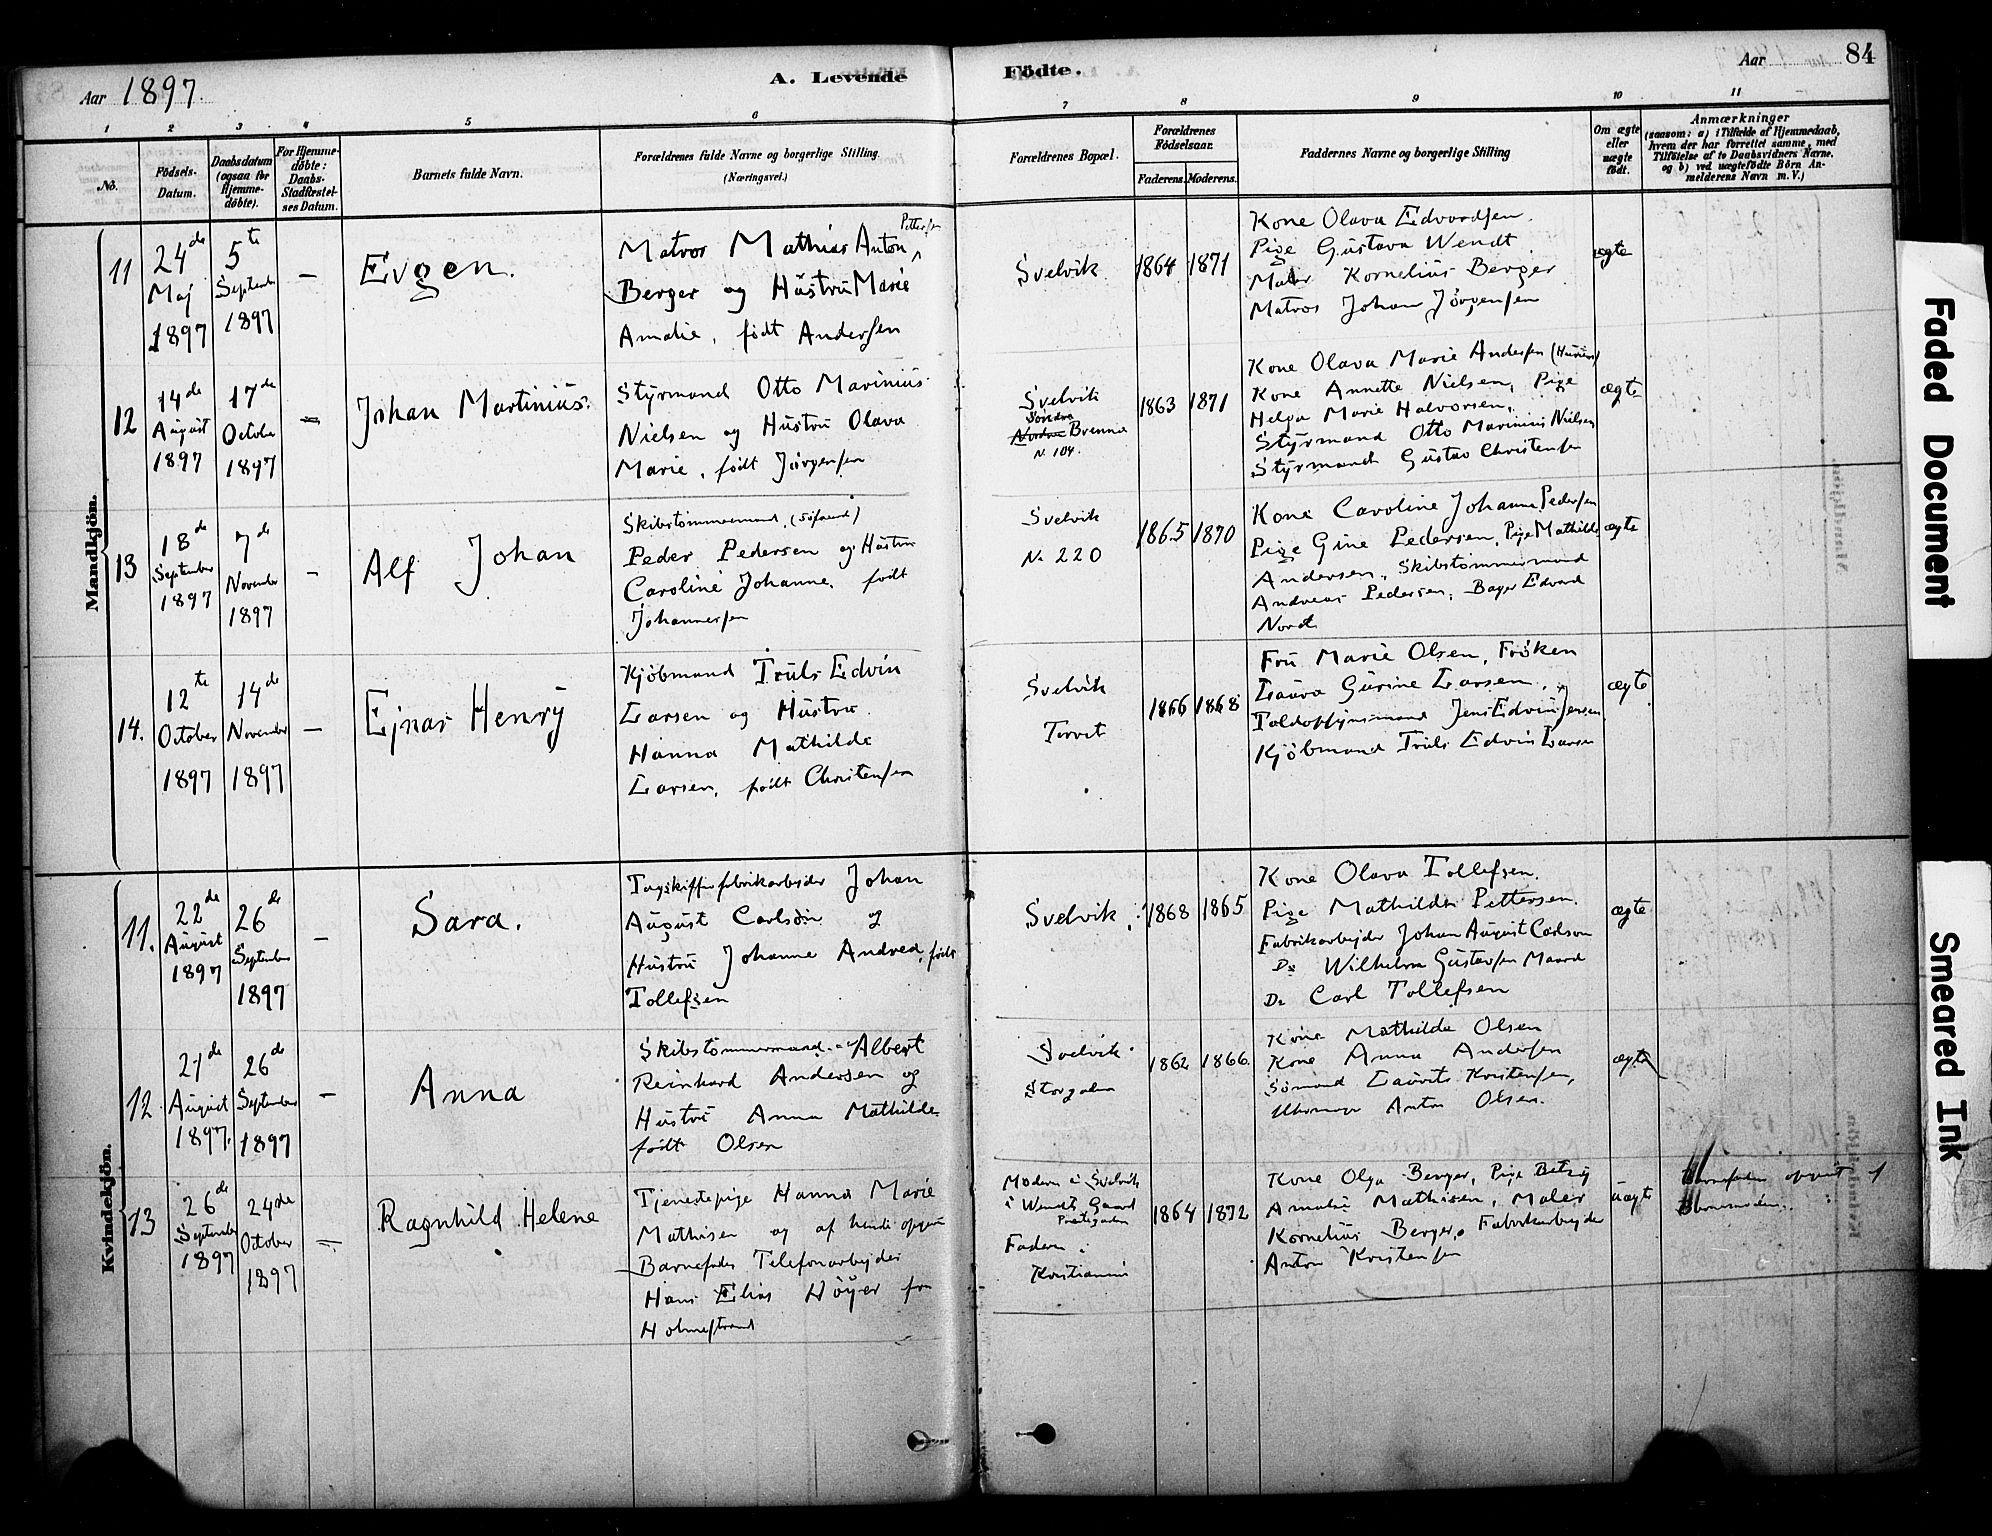 Aar 1897
A. Levende
Födte.
Aar
84
1
2
3
4
5
6
7
8
9
10
11
No.
Födsels-
Datum.
Daabsdatum
(ogsaa for
Hjemme-
döbte).
For Hjemme-
döbte:
Daabs-
Stadfæstel-
ses Datum.
Barnets fulde Navn.
Forældrenes fulde Navne og borgerlige Stilling.
(Næringsvei.)
Forældrenes Bopæl.
Forældrenes
Födselsaar.
Faderens.
Moderens.
Faddernes Navne og borgerlige Stilling
Om ægte
eller
uægte
födt.
Anmærkninger
(saasom: a) i Tilfælde af Hjemmedaab,
hvem der har forrettet samme, med
Tilföielse af to Daabsvidners Navne,
og b) ved uægtefödte Börn An-
melderens Navn m. V.)
Mandkjön.
11
24de
Maj
1897
5te
September
1897
–
Evgen.
Pettersen
Matros Mathias Anton
Berger og Hustru Marie
Amalie, født Andersen
Svelvik
1864
1871
Kone Olava Edvardsen.
Pige Gustava Wendt
Maler Kornelius Berger
Matros Johan Jörgensen
ægte
12
14de
August
1897
17de
October
1897
–
Johan Martinius.
Styrmand Otto Marinius
Nielsen og Hustru Olava
Marie, født Jørgensen
Svelvik
Søndre
Nordre Brenna
N. 104.
1863
1871
Kone Olava Marie Andersen
Kone Annette Nielsen, Pige
Helga Marie Halvorsen,
Styrmand Otto Marinius Nielsen
Styrmand Gustav Christensen
ægte
13
18de
September
1897
7de
November
1897
–
Alf Johan
Skibstømmermand,
Peder Pedersen og Hustru
Caroline Johanne, født
Johannesen
Svelvik
N. 220
1865
1870
Kone Caroline Johanne Pedersen
Pige Gine Pedersen, Pige Mathilde
Andersen, Skibstømmermand
Andreas Pedersen, Bager Edvard
Nord
ægte
14.
12te
October
1897
14de
November
1897
–
Ejnar Henry
Kjöbmand Truls Edvin
Larsen og Hustru
Hanna Mathilde
Larsen, født Christensen
Svelvik
Torvet
1866
1868
Fru Marie Olsen, Frøken
Laura Gurine Larsen,
Toldopsynsmand Jens Edvin Jensen
Kjöbmand Truls Edvin Larsen
ægte
Kvindekjön.
11.
22de
August
1897
26de
September
1897
–
Sara.
Tagskifferfabrikarbejder Johan
August Carlson og
Hustru Johanne Andrea, født
Tollefsen
Svelvik
1868
1865
Kone Olava Tollefsen.
Pige Mathilda Pettersen.
Fabrikarbejder Johan August Carlson
Do Wilhelm Gustavsen
Do Carl Tollefsen
ægte
12
21de
August
1897.
26de
September
1897
–
Anna
Skibstømmermand Albert
Reinhard Andersen og
Hustru Anna Mathilde
født Olsen
Svelvik
Storgaden
1862
1866.
Kone Mathilde Olsen
Kone Anna Andersen
Sömand Laurits Kristensen,
Uhrmager Anton Olsen.
ægte
13
26de
September
1897
24de
October
1897
–
Ragnhild Helene
Tjenestepige Hanna Marie
Mathisen og af hende opgivne
Barnefader Telefonarbejder
Hans Elias Höyer fra
Holmestrand
Modern i Svelvik
i Wendts Gaard
Fadern i
Kristiania
1864
1872
Kone Olga Berger, Pige Betzy
Amalie Mathisen, Maler
Kornelius Berger, Fabrikarbejder
Anton Kristensen
uægte
Barnefader opgivet af
Barnemoderen.
Faded Document
Smeared Ink